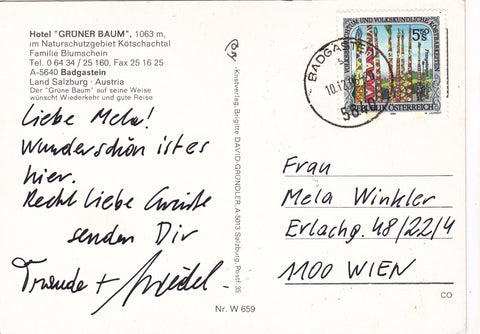 Hotel "GRÜNER BAUM", 1063 m,
im Naturschutzgebiet Kötschachtal
Familie Blumschein
Tel. 0 64 34 / 25 160, Fax 25 16 25
A-5640 Badgastein
Land Salzburg · Austria
Der "Grüne Baum" auf seine Weise
wünscht Wiederkehr und gute Reise
Liebe Mela!
Wunderschön ist es
hier.
Recht liebe Grüße
senden Dir
Traude + Friedel.
Kostverlag, Brigitte DAVID-GRÜNDLER, A-5013 Salzburg, Postf. 35
Nr. W 659
BADGASTEIN
10.12.
5640
VOLKSBRAUCHTUM UND VOLKSKUNDLICHE KOSTBARKEITEN
550
S
REPUBLIK ÖSTERREICH
Frau
Mela Winkler
Erlachg. 48/22/4
1100 WIEN
CO